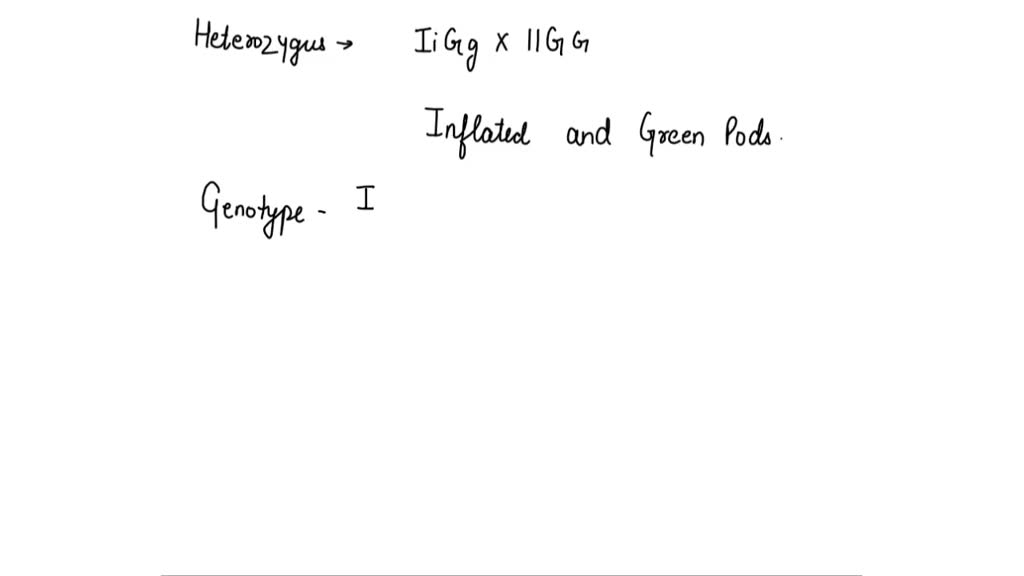 Heterozygus → IiGg x IIGG
Inflated and Green Pods.
Genotype - I